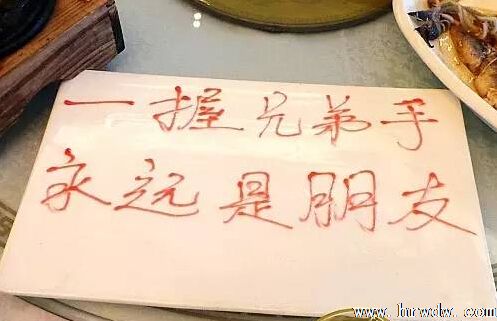 一握兄弟手
永远是朋友
www.hrwdw.com